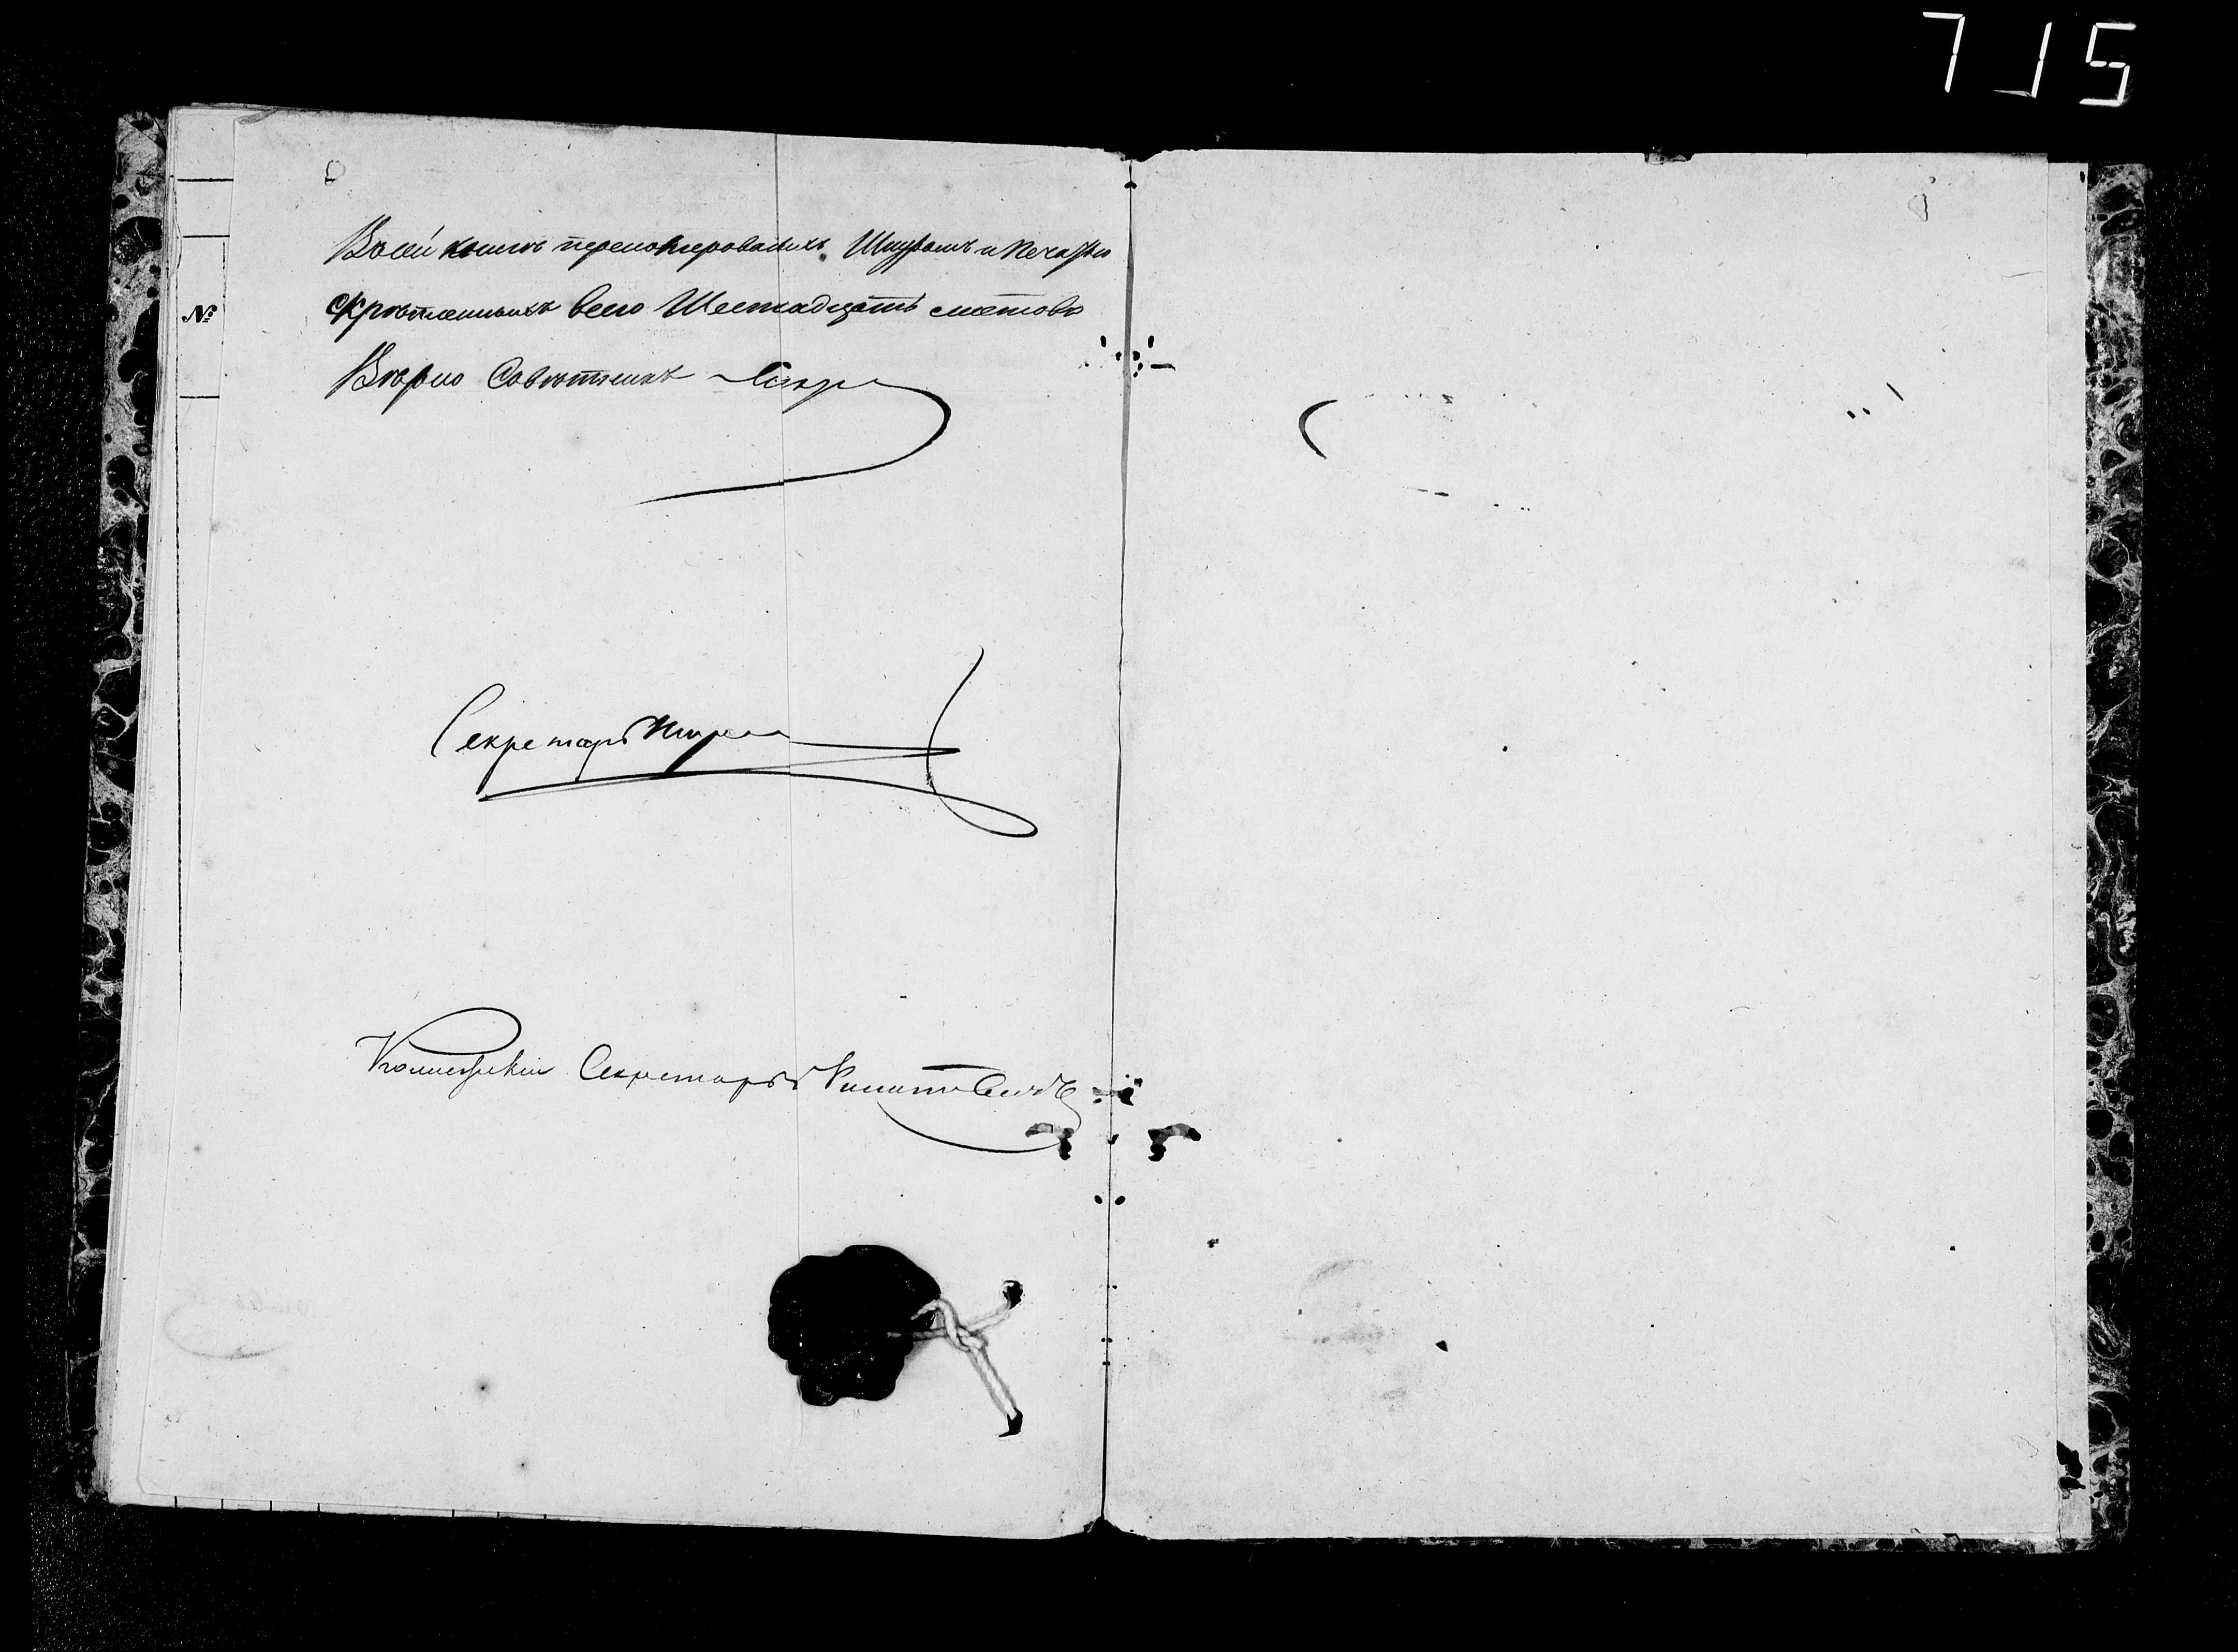 715
Въ сей книгѣ перенумерованныхъ Шнуромъ и Печатью
скрѣпленныхъ всего Шестнадцать листовъ
№
Вѣрно Совѣтникъ
Секретарь
Коллежскій Секретарь